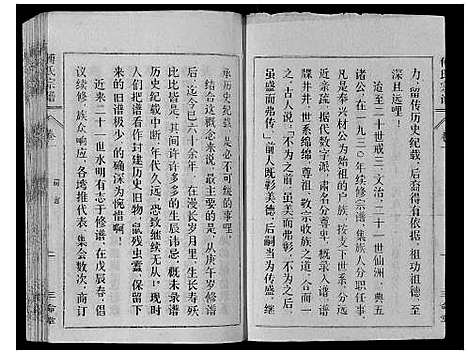 力、留传历史纪载、后裔得有依据、祖功祖德、
深且远哩!
迨至二十世戒三、文治、二十一世仙洲、典五
诸公、在一九三〇年续修宗谱、集族人分析研究、
凡是奉兴材公为始祖的户族、按支下世系、分远
近亲疏、据代数字派、肃名分尊卑、概录入谱、谱
牒井井、世系绵绵、尊祖、敬宗收族之道、于以大
之、古人说「不为之前、虽美而弗彰、不为之后、
虽盛而弗传」、前人既彰美德、后嗣当为传盛、继
承历史纪载、是必不可缺的事哩。
结合这概念来说、最主要的、是从庚午岁修谱
后、迄今已六十余年、在漫长岁月里、生长寿殁、
比比皆是、其间许许多多的生辰讳忌、概未录谱、
历史纪载中断、年代久远、恐致继续无从!现时
人们把谱看作封建历史旧物、鼠残虫蠹、保留下
来的旧谱极少的确深为惋惜啊!
近来二十一世水明有志于修谱、在戊辰春、倡
议续修、族众响应、各塆推代表、集会数次、商订
傅氏宗谱
卷